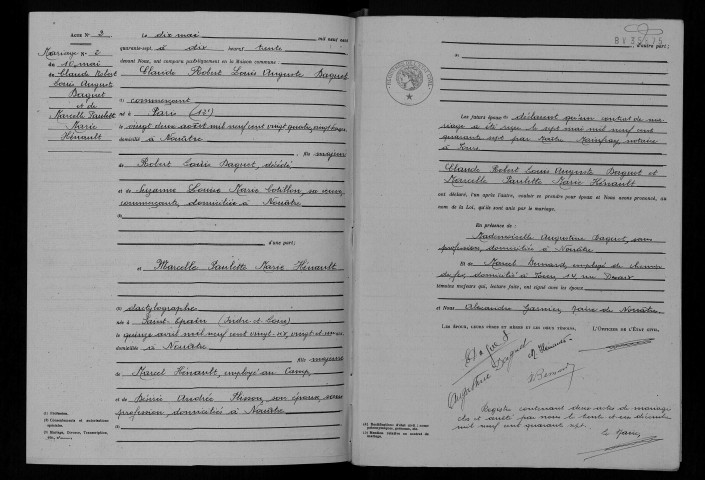 Acte N° 2
Mariage N° 2
du 10 mai
de Claude Robert
Louis Auguste
Baguet
et de
Marcelle Paulette
Marie
Hénault
Le dix mai mil neuf cent
quarante-sept à dix heures trente
devant Nous, ont comparu publiquement en la Maison commune :
Claude Robert Louis Auguste Baguet
(1) commerçant
né à Paris (12e)
le vingt deux août mil neuf cent vingt quatre, vingt deux ans
domicilié à Nouâtre
fils majeur
de Robert Louis Baguet, décédé
et de Suzanne Louise Marie Cotillon, sa veuve,
commerçante, domiciliée à Nouâtre
d'une part ;
et Marcelle Paulette Marie Hénault
(1) dactylographe
née à Saint Epain (Indre et Loire)
le quinze avril mil neuf cent vingt-six, vingt et un ans
domiciliée à Nouâtre
fille majeure
de Marcel Hénault, employé au Camp,
et de Andrée son épouse, sans
profession, domiciliés à Nouâtre
(1) Profession.
(2) Consentements et autorisations
spéciales.
(3) Mariage, Divorce, Transcription,
d'autre part ;
Les futurs époux déclarent qu'un contrat de ma-
riage a été reçu le sept mai mil neuf cent
quarante sept par Maître notaire
à
Claude Robert Louis Auguste Baguet et
Marcelle Paulette Marie Hénault
ont déclaré, l'un après l'autre, vouloir se prendre pour époux et Nous avons prononcé, au
nom de la Loi, qu'ils sont unis par le mariage.
En présence de :
Mademoiselle Augustine Baguet, sans
profession, domiciliée à Nouâtre
Et de Marcel Bernard, employé de chemin
de fer, domicilié à Tours, 14, rue
témoins majeurs qui, lecture faite, ont signé avec les époux
et Nous Alexandre Garnier, Maire de Nouâtre
Les époux, L'Officier de l'État civil,
Augustine Baguet
M. Hénault
Bernard
Registre contenant deux actes de maria-
ges et arrêté par nous le trente et un décembre
mil neuf cent quarante sept.
Le Maire,